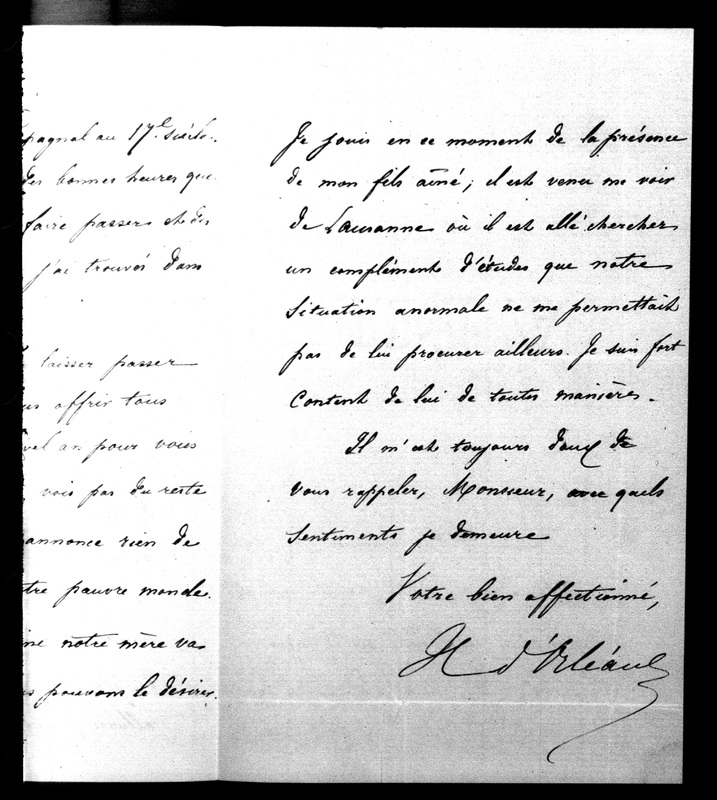 pagnol au 17e siècle.
des bonnes heures que
faire passer et des
j'ai trouvés dans
laisser passer
us offrir tous
vel an pour vous
vois pas du reste
annonce rien de
tre pauvre monde.
ne notre mère va
s pouvons le désirer.
Je jouis en ce moment de la présence
de mon fils aîné; il est venu me voir
de Lausanne où il est allé chercher
un complément d'études que notre
situation anormale ne me permettait
pas de lui procurer ailleurs. Je suis fort
content de lui de toutes manières.
Il m'est toujours doux de
vous rappeler, Monsieur, avec quels
sentiments je demeure
Votre bien affectionné,
H d'Orléans